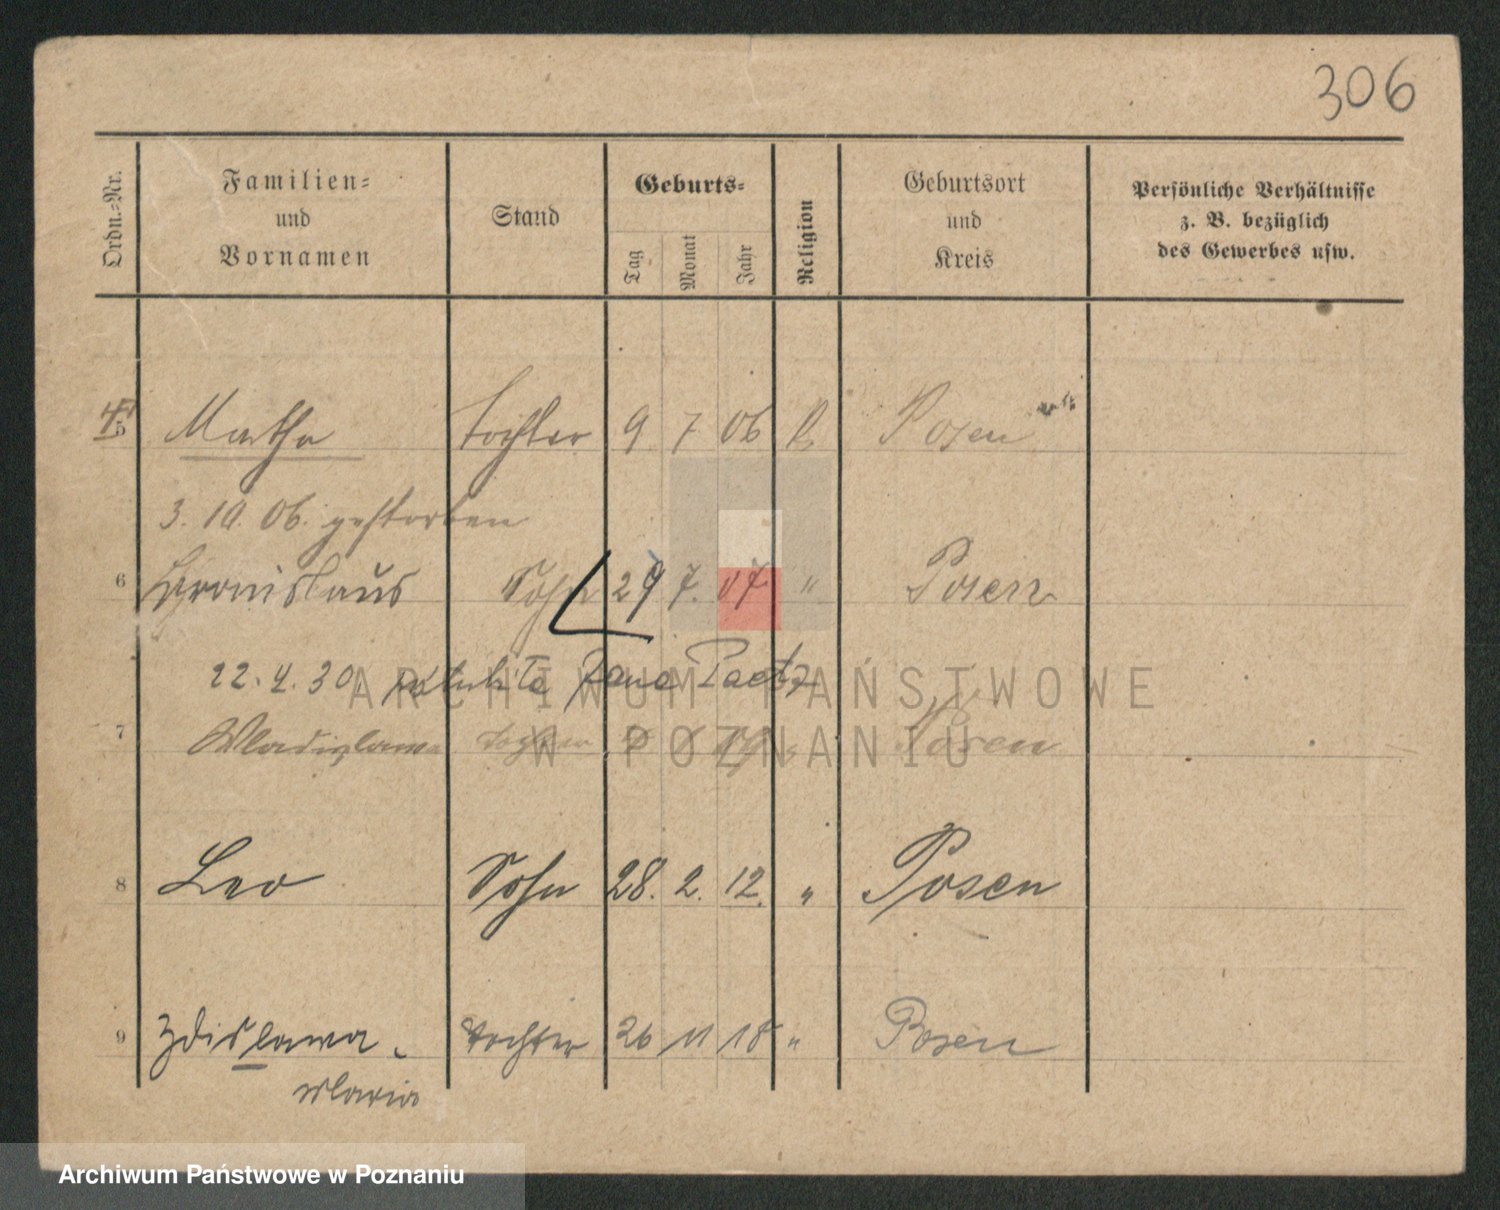 306
Ordn.-Nr.
Familien-
und
Vornamen
Stand
Geburts-
Tag
Monat
Jahr
Religion
Geburtsort
und
Kreis
Persönliche Verhältnisse
z. B. bezüglich
des Gewerbes usw.
5 Martha Tochter 9 7 06 Posen
3. 10. 06. gestorben
6 Bronislaus Sohn 29 7. 07. " Posen
22. 4. 30
ARCHIWUM PAŃSTWOWE
7 Wladislawa Tochter Posen
W POZNANIU
8 Leo Sohn 28. 2. 12. " Posen
9 Zdislawa Tochter 26 11 18 " Posen
Maria
Archiwum Państwowe w Poznaniu